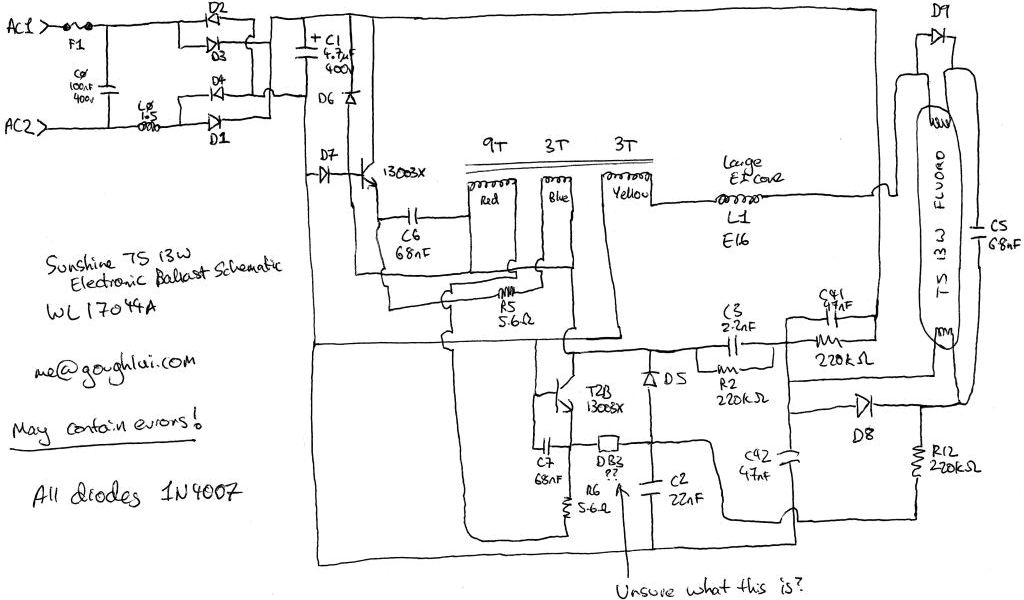 AC1
F1
D2
D3
D4
D1
C0
100nF
400v
L0
1.5
AC2
+ C1
4.7µF
400v
D6
D7
13003X
C6
68nF
9T
3T
3T
Red
Blue
Yellow
R5
5.6Ω
Large
EI core
L1
E16
D9
T5 13W FLUORO
C5
68nF
C41
47nF
220kΩ
C3
2.2nF
R2
220kΩ
D5
T2B
13003X
C7
68nF
DB3
??
R6
5.6Ω
C2
22nF
C42
47nF
D8
R12
220kΩ
Unsure what this is?
Sunshine T5 13W
Electronic Ballast Schematic
WL17044A
me@goughlui.com
May contain errors!
All diodes 1N4007